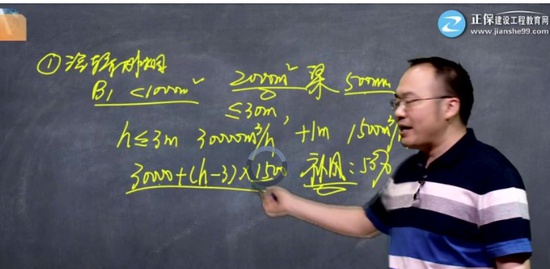 正保建设工程教育网
www.jianshe99.com
① 汽车库排烟
B₁ <1000m² 2000m² 梁 500mm
≤30m,
h≤3m 30000m³/h +1m 1500m³/h
30000+(h-3)×1500 补风:50%